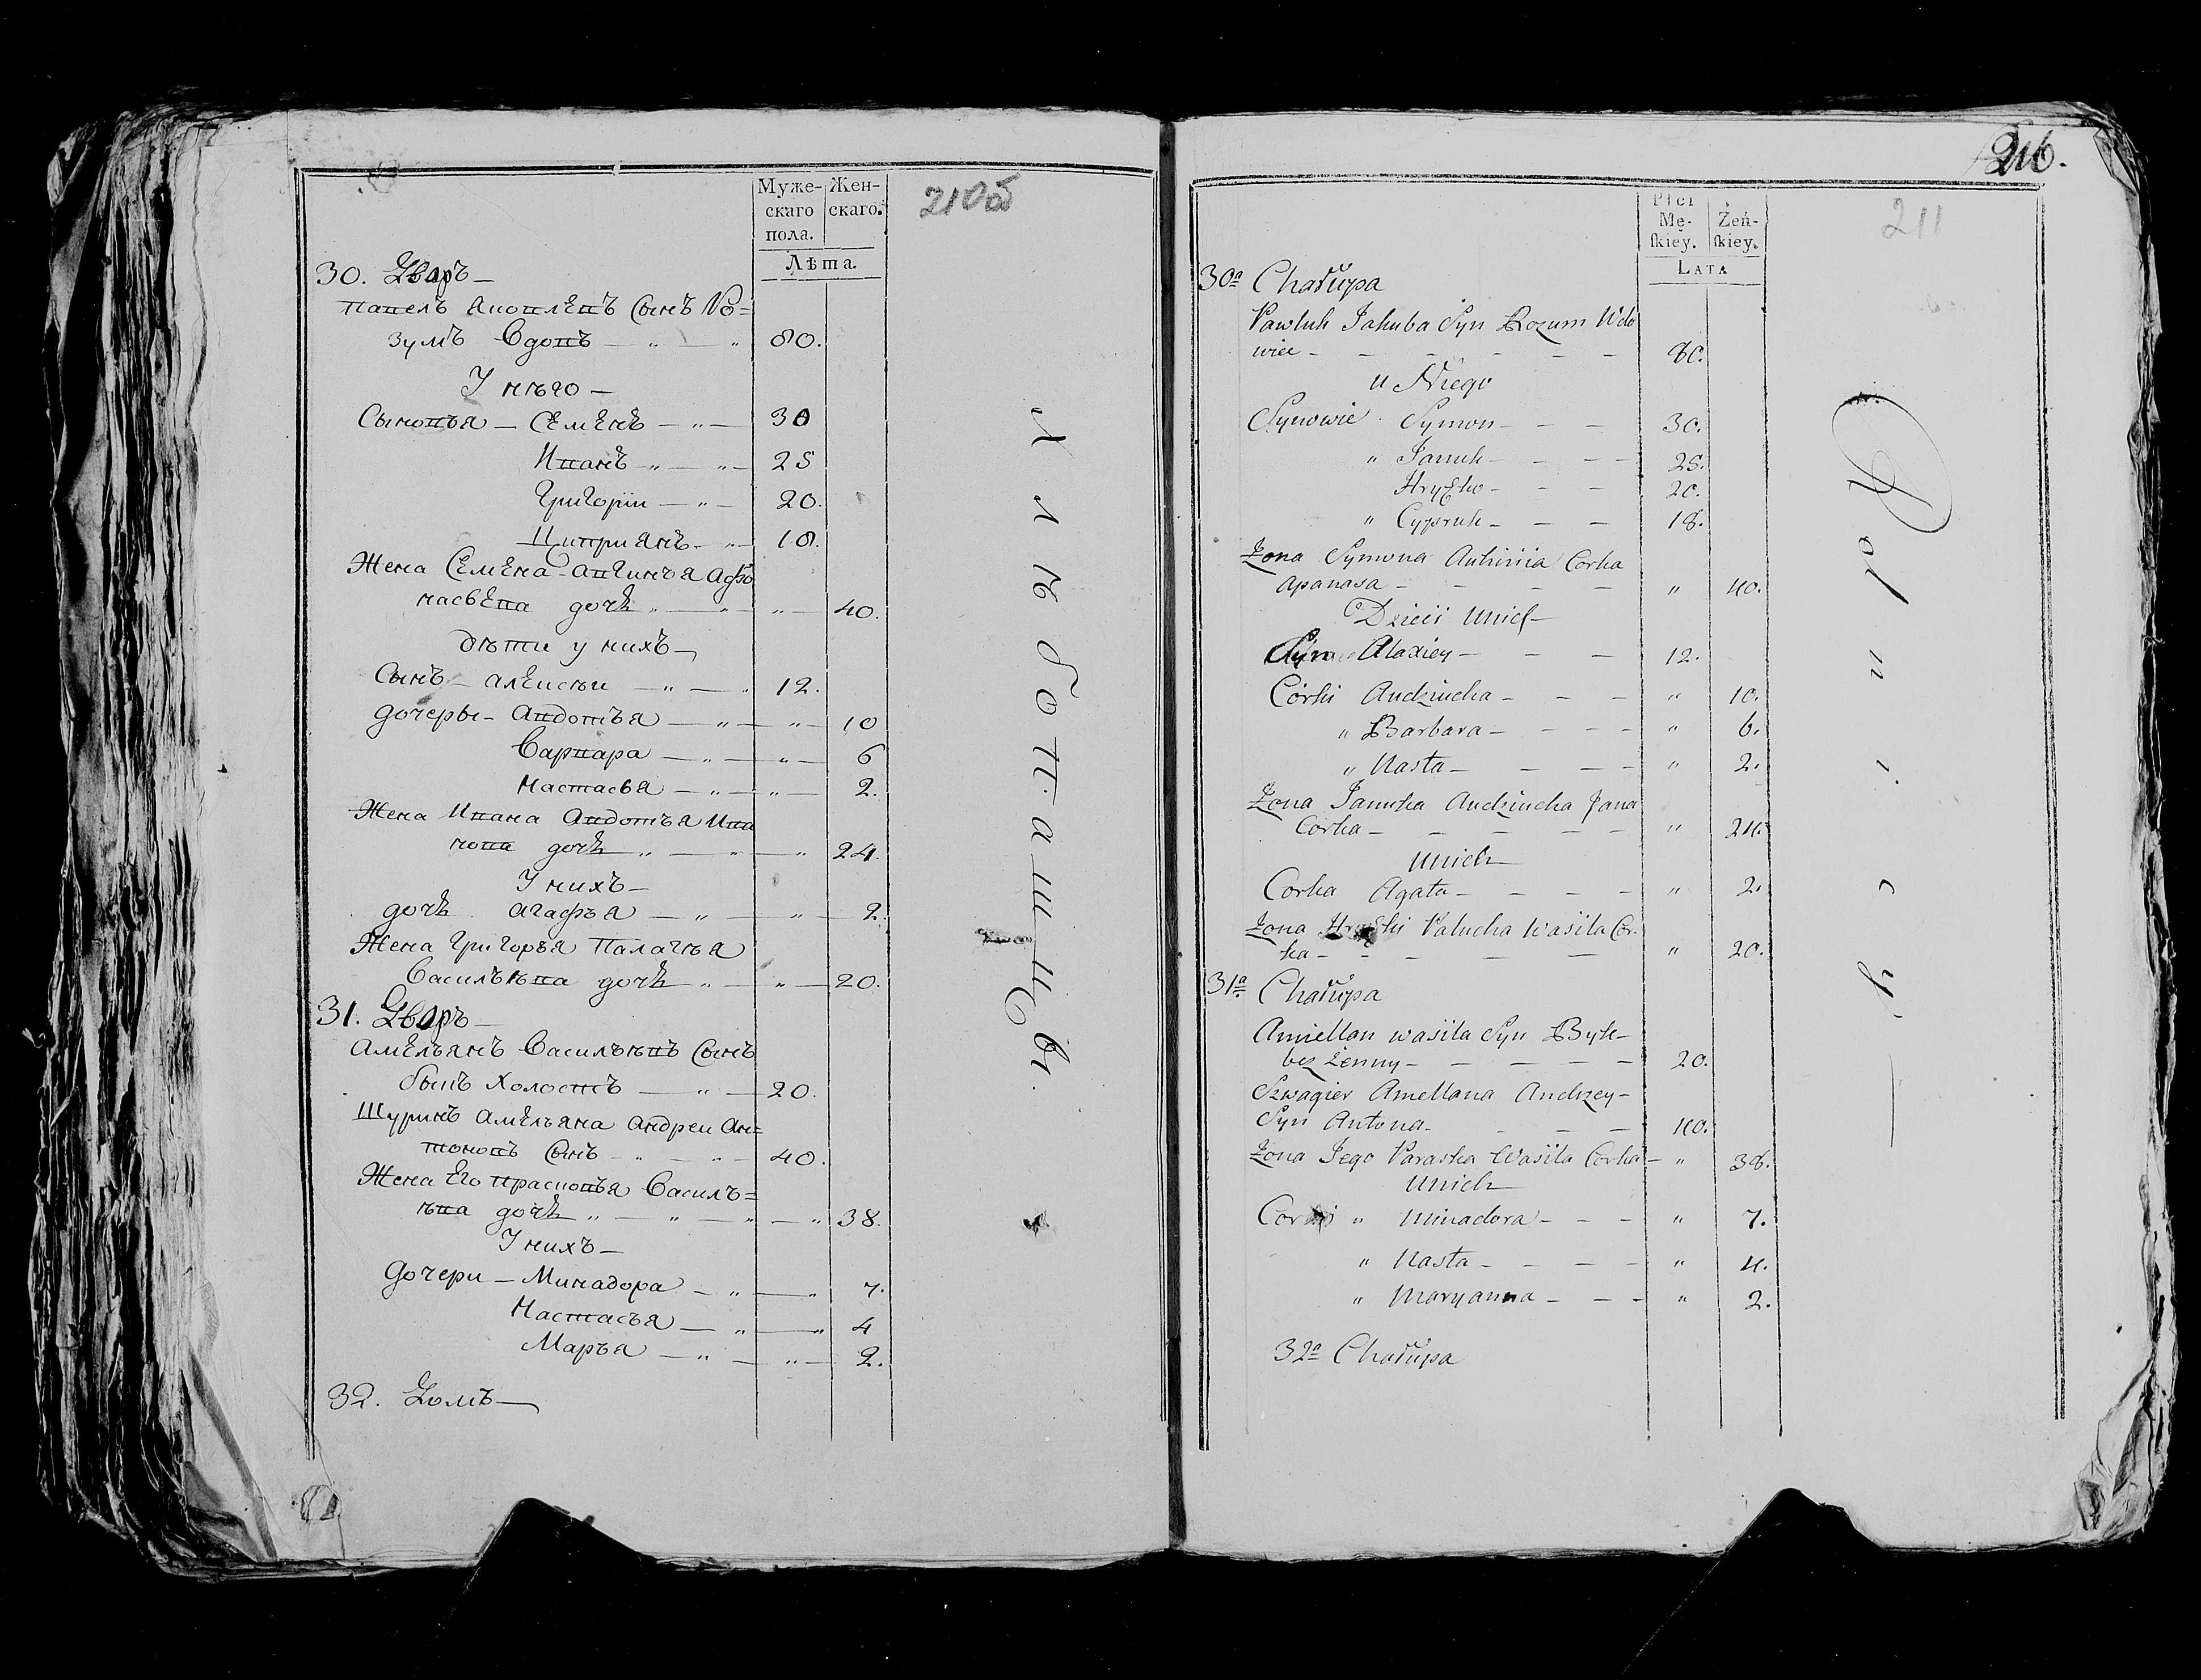 Муже-
скаго
пола.
Жен-
скаго.
Лѣта.
210об
30. Дворъ —
Павелъ Яковлевъ Сынъ Ро=
зумъ Вдовъ — „ — „ 80.
У него —
Сыновья — Семенъ — „ — 30
Иванъ — „ — „ — 25
Григорiи — „ — 20.
Циприянъ — „ — 18.
Жена Семена Авгинья Афо
насьева дочь „ — „ — „ — 40.
дѣти у нихъ —
Сынъ — Алексѣи — „ — „ 12.
дочеры — Авдотья — „ — „ — 10
Варвара — „ — „ — 6
Настасья — „ — „ — 2.
Жена Ивана Авдотья Ива
нова дочь „ — „ — „ 24.
У нихъ —
дочь Агафья — „ — „ — 2.
Жена Григорья Палагѣя
Васильѣва дочь „ — „ — 20.
31. Дворъ —
Амельянъ Васильѣвъ Сынъ
быкъ Холостъ — „ — 20.
Шуринъ Амельяна Андреи Ан=
тоновъ Сынъ — „ — „ — 40.
Жена Его Прасковья Василь=
ѣва дочь „ — „ — „ — „ 38.
У нихъ —
Дочери — Минадора — „ — „ 7.
Настасья — „ — „ 4
Марья — „ — „ — 2.
32. Домъ —
Хлѣбопашцы.
216.
211
Płci
Mę-
skiey.
Żeń-
skiey.
Lata
30a Chałupa
Pawluk Jakuba Syn Rozum Wdo
wiec — — — — — — 80.
u Niego
Synowie Symon — — — 30.
„ Januk — — — — 25.
Hryszko — — — 20.
„ Cypruk — — — 18.
Żona Symona Auhinia Corka
Apanasa — — — — „ 40.
Dzieci Unich —
Syn Alaxiey — — — 12.
Córki Audziucha — — — „ 10.
„ Barbara — — — — „ 6.
„ Nasta — — — — „ 2.
Żona Januka Audziucha Jana
Corka — — — — — „ 24.
Unich
Corka Agata — — — — „ 2.
Żona Hryszki Palucha Wasila Cor-
ka — — — — — „ 20.
31a Chałupa
Amiellan Wasila Syn Byk —
bez Żenny — — — — — 20.
Szwagier Amellana Andrzey —
Syn Antona — — — — 40.
Żona Jego Paraska Wasila Corka — „ 38.
Unich
Corki „ Minadora — — — „ 7.
„ Nasta — — — — „ 4.
„ Maryanna — — — „ 2.
32a Chałupa